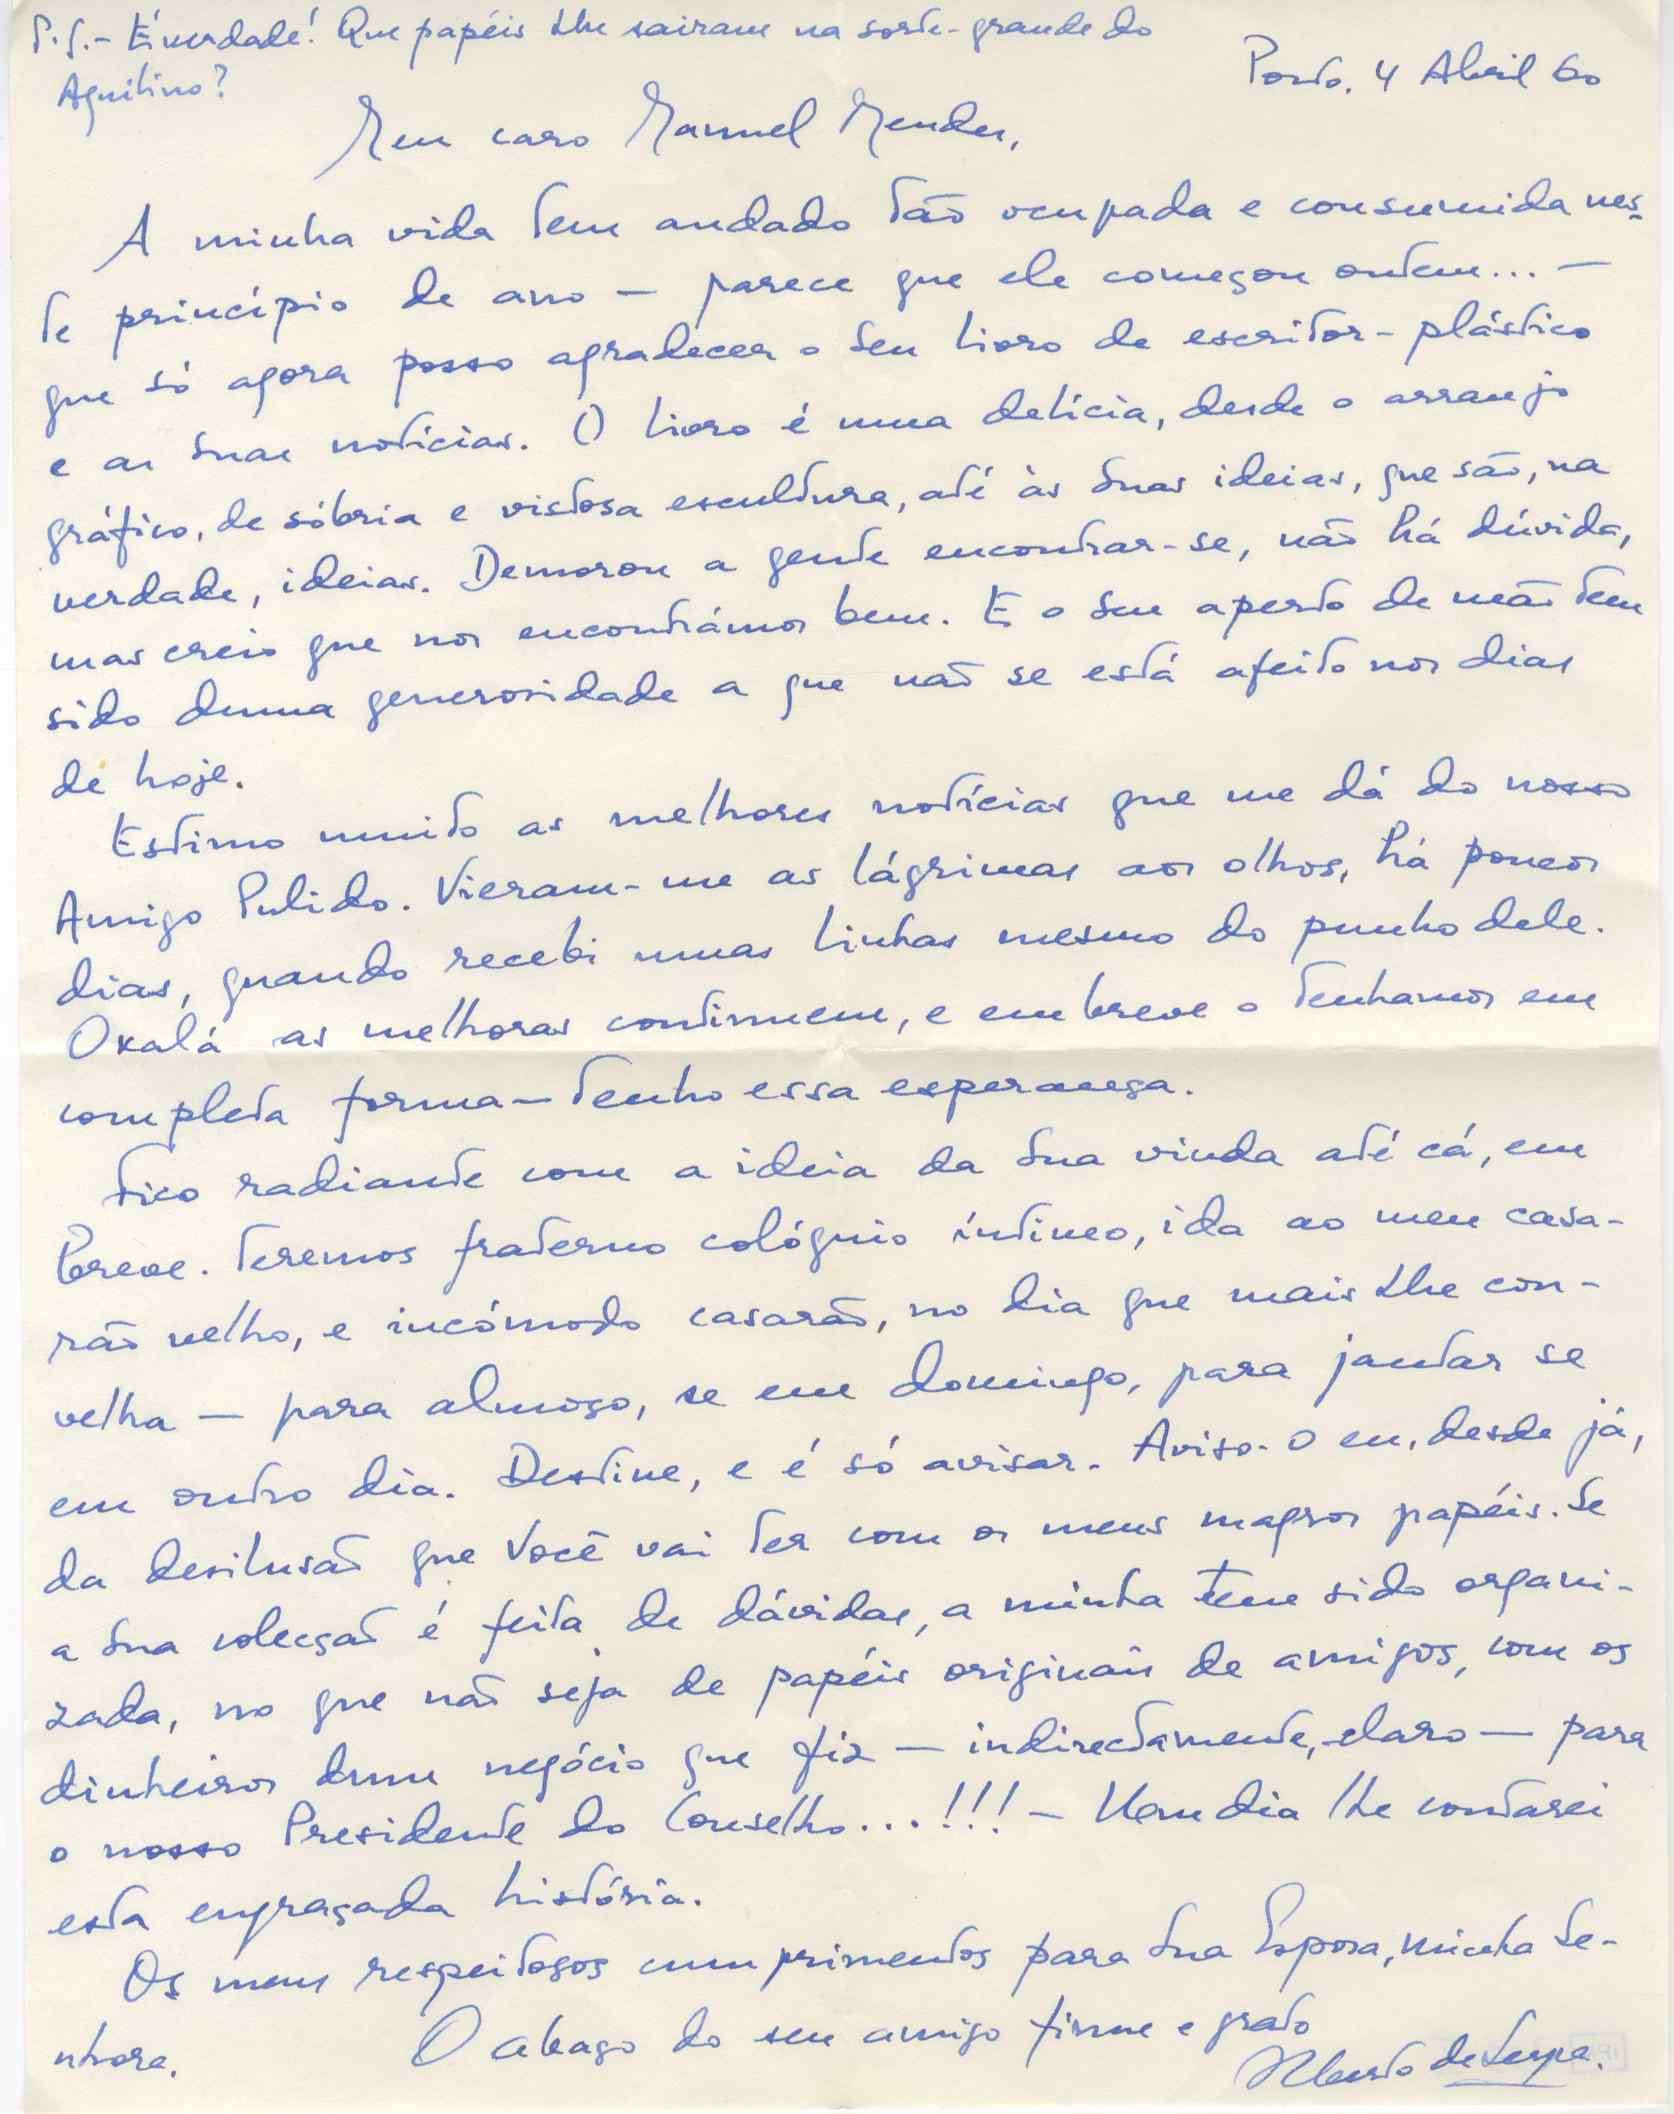 P.S.- É verdade! Que papéis lhe sairam na sorte-grande do
Aquilino?
Porto. 4 Abril 60
Meu caro Manuel Mendes,
A minha vida tem andado tão ocupada e consumida nes-
te princípio de ano — parece que ele começou ontem... —
que só agora posso agradecer o seu livro de escritor-plástico
e as suas notícias. O livro é uma delícia, desde o arranjo
gráfico, de sóbria e vistosa escultura, até às suas ideias, que são, na
verdade, ideias. Demorou a gente encontrar-se, não há dúvida,
mas creio que nos encontrámos bem. E o seu aperto de mão tem
sido duma generosidade a que não se está afeito nos dias
de hoje.
Estimo muito as melhores notícias que me dá do nosso
Amigo Pulido. Vieram-me as lágrimas aos olhos, há poucos
dias, quando recebi umas linhas mesmo do punho dele.
Oxalá as melhoras continuem, e em breve o tenhamos em
completa forma — tenho essa esperança.
Fico radiante com a ideia da sua vinda até cá, em
breve. Teremos fraterno colóquio íntimo, ida ao meu casa-
rão velho, e incómodo casarão, no dia que mais lhe con-
velha — para almoço, se em domingo, para jantar se
em outro dia. Destine, e é só avisar. Aviso-o eu, desde já,
da desilusão que Você vai ter com os meus magros papéis. Se
a sua colecção é feita de dávidas, a minha tem sido organi-
zada, no que não seja de papéis originais de amigos, com os
dinheiros dum negócio que fiz — indirectamente, claro — para
o nosso Presidente do Conselho...!!! — Um dia lhe contarei
esta engraçada história.
Os meus respeitosos cumprimentos para sua Esposa, minha Se-
nhora.
O abraço do seu amigo firme e grato
Alberto de Serpa.